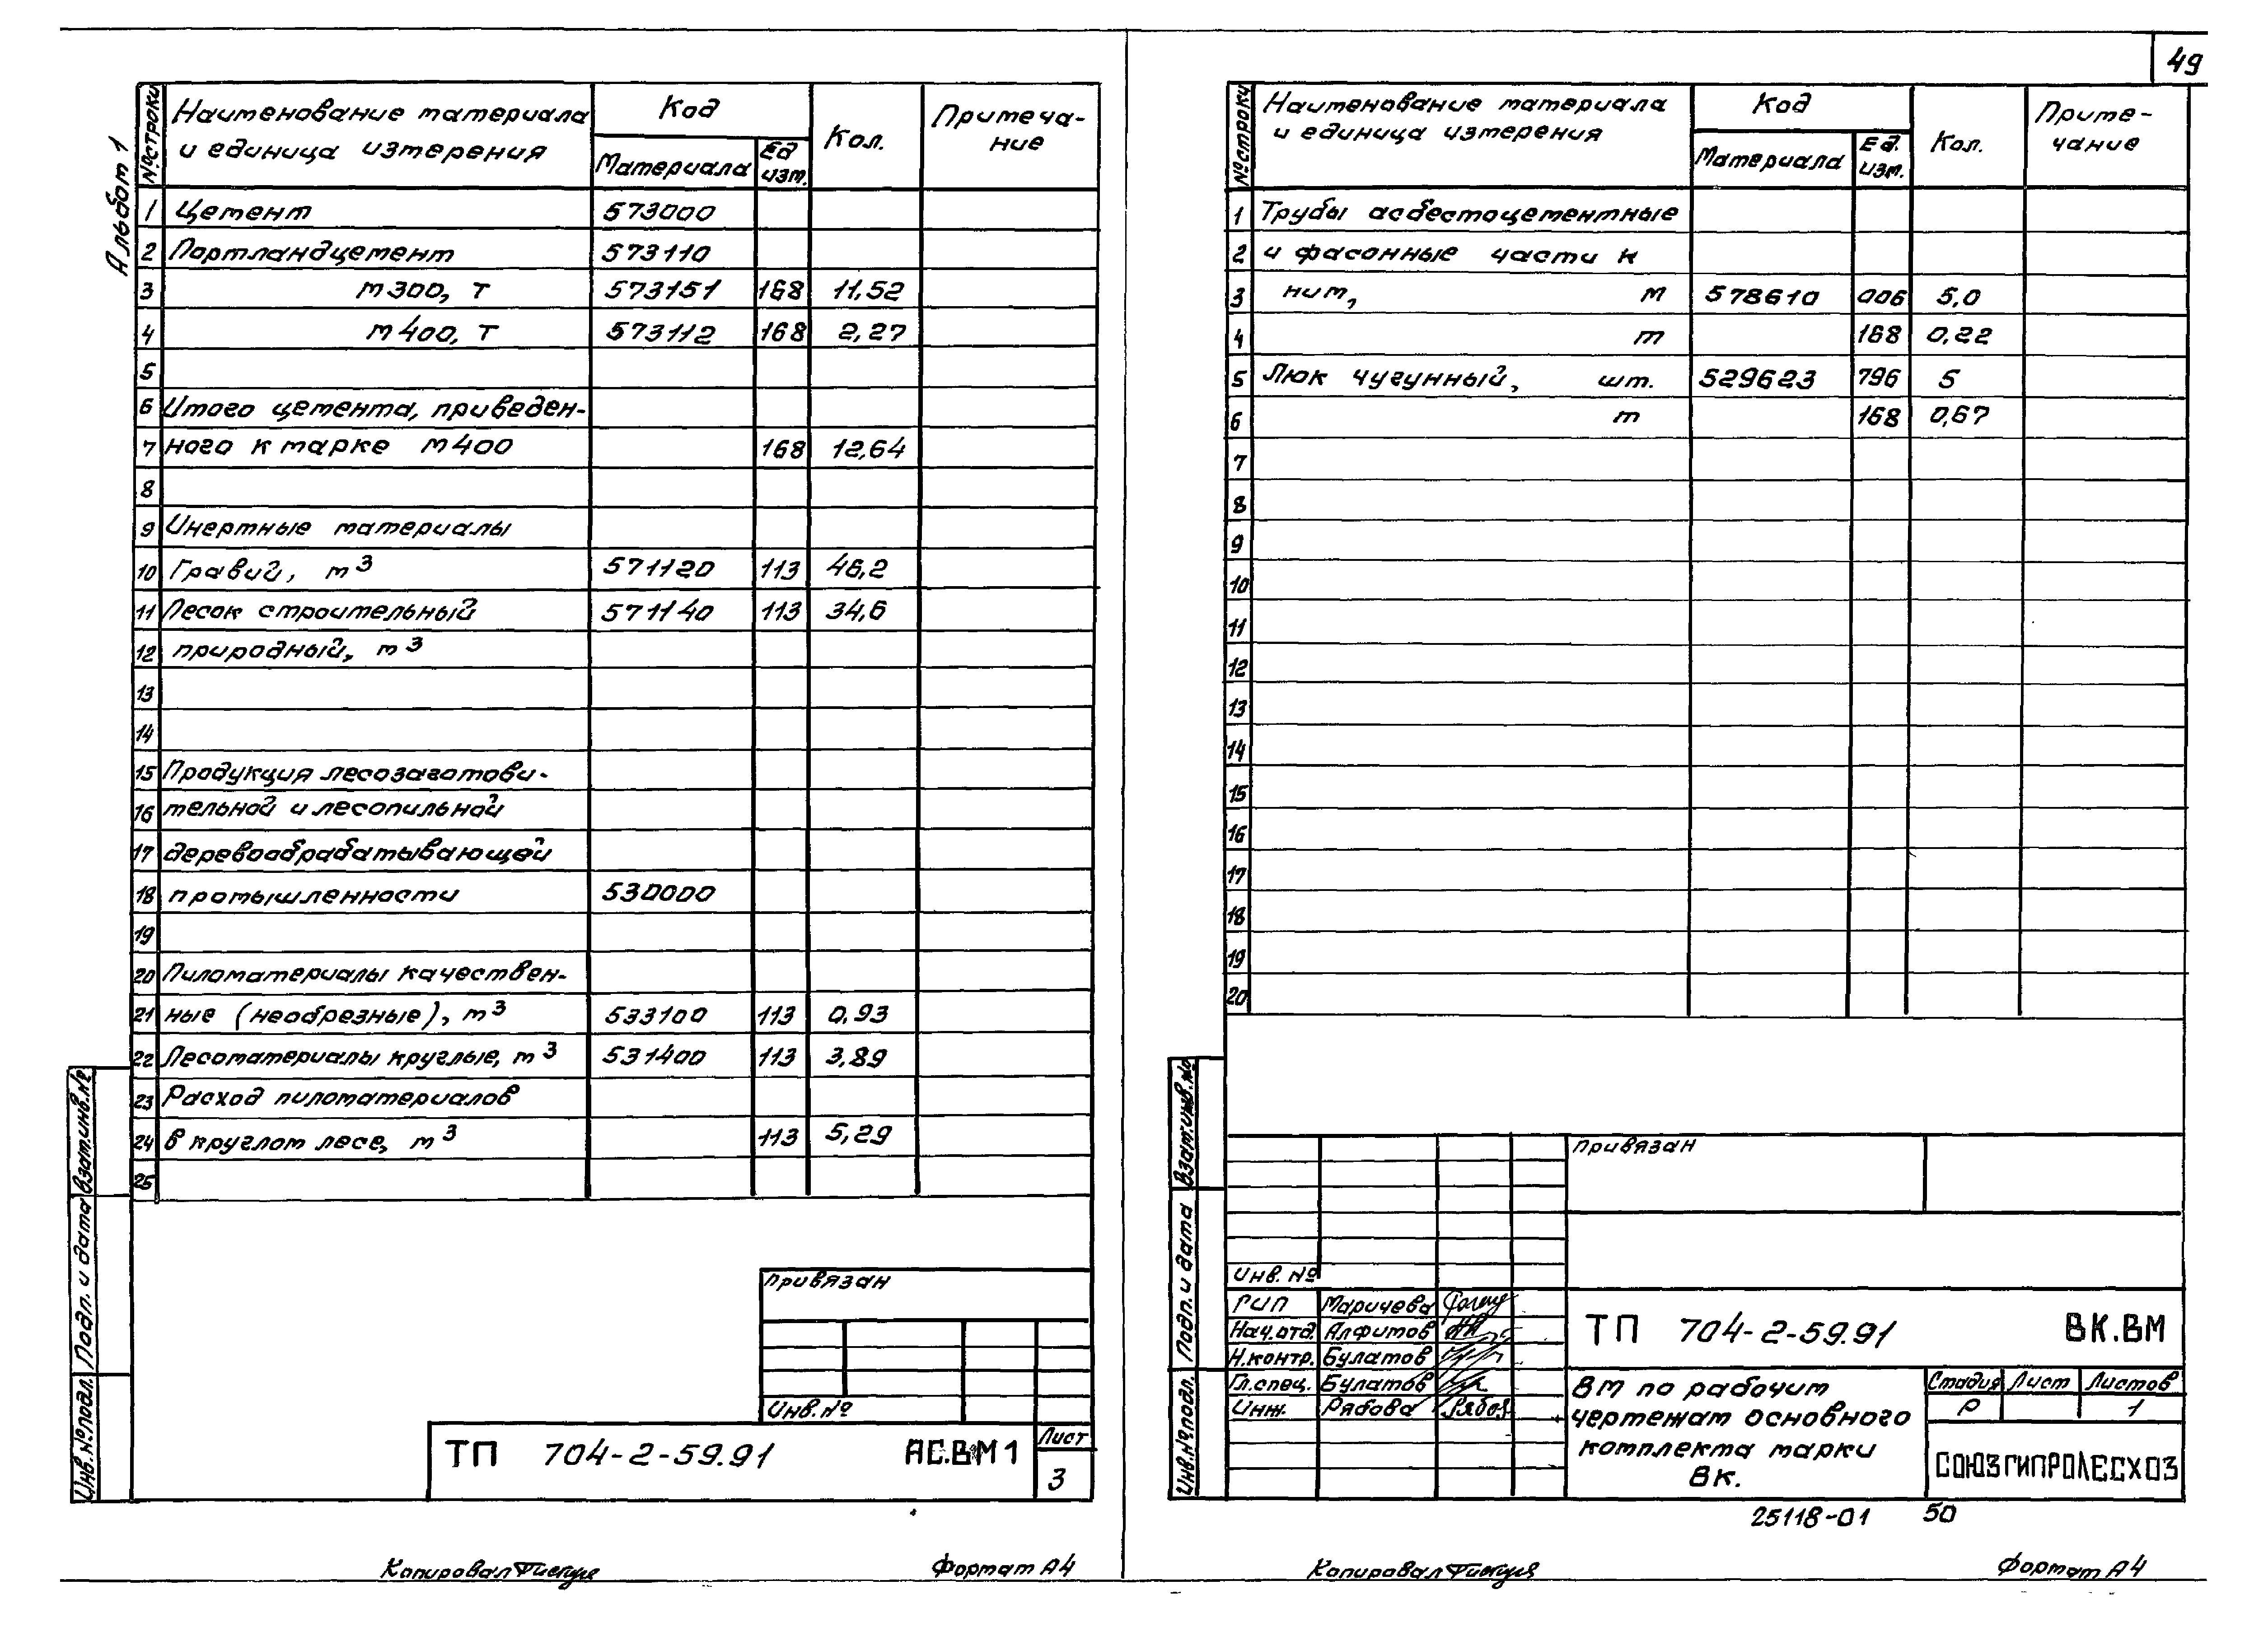 49
Альбом 1
№ строки Наименование материала и единица измерения Код Материала Ед. изм. Кол. Примеча-ние
1 Цемент 573000
2 Портландцемент 573110
3 м300, т 573151 168 11,52
4 м400, т 573112 168 2,27
5
6 Итого цемента, приведен-
7 ного к марке м400 168 12,64
8
9 Инертные материалы
10 Гравий, м³ 571120 113 46,2
11 Песок строительный 571140 113 34,6
12 природный, м³
13
14
15 Продукция лесозаготови-
16 тельной и лесопильной
17 деревообрабатывающей
18 промышленности 530000
19
20 Пиломатериалы качествен-
21 ные (необрезные), м³ 533100 113 0,93
22 Лесоматериалы круглые, м³ 531400 113 3,89
23 Расход пиломатериалов
24 в круглом лесе, м³ 113 5,29
25
Взам.инв.№
Подп. и дата
Инв.№подл.
привязан
Инв.№
ТП 704-2-59.91 АС.ВМ1
Лист
3
Копировал
Формат А4
№ строки Наименование материала и единица измерения Код Материала Ед. изм. Кол. Приме-чание
1 Трубы асбестоцементные
2 и фасонные части к
3 ним, м 578610 006 5,0
4 т 168 0,22
5 Люк чугунный, шт. 529623 796 5
6 т 168 0,67
7
8
9
10
11
12
13
14
15
16
17
18
19
20
Взам.инв.№
Подп. и дата
Инв.№подл.
привязан
Инв. №
ГИП Маричева
Нач.отд. Алфимов
Н.контр. Булатов
Гл.спец. Булатов
Инж. Рябова
ТП 704-2-59.91 ВК.ВМ
ВМ по рабочим
чертежам основного
комплекта марки
ВК.
Стадия Лист Листов
Р 1
СОЮЗГИПРОЛЕСХОЗ
25118-01 50
Копировал
Формат А4